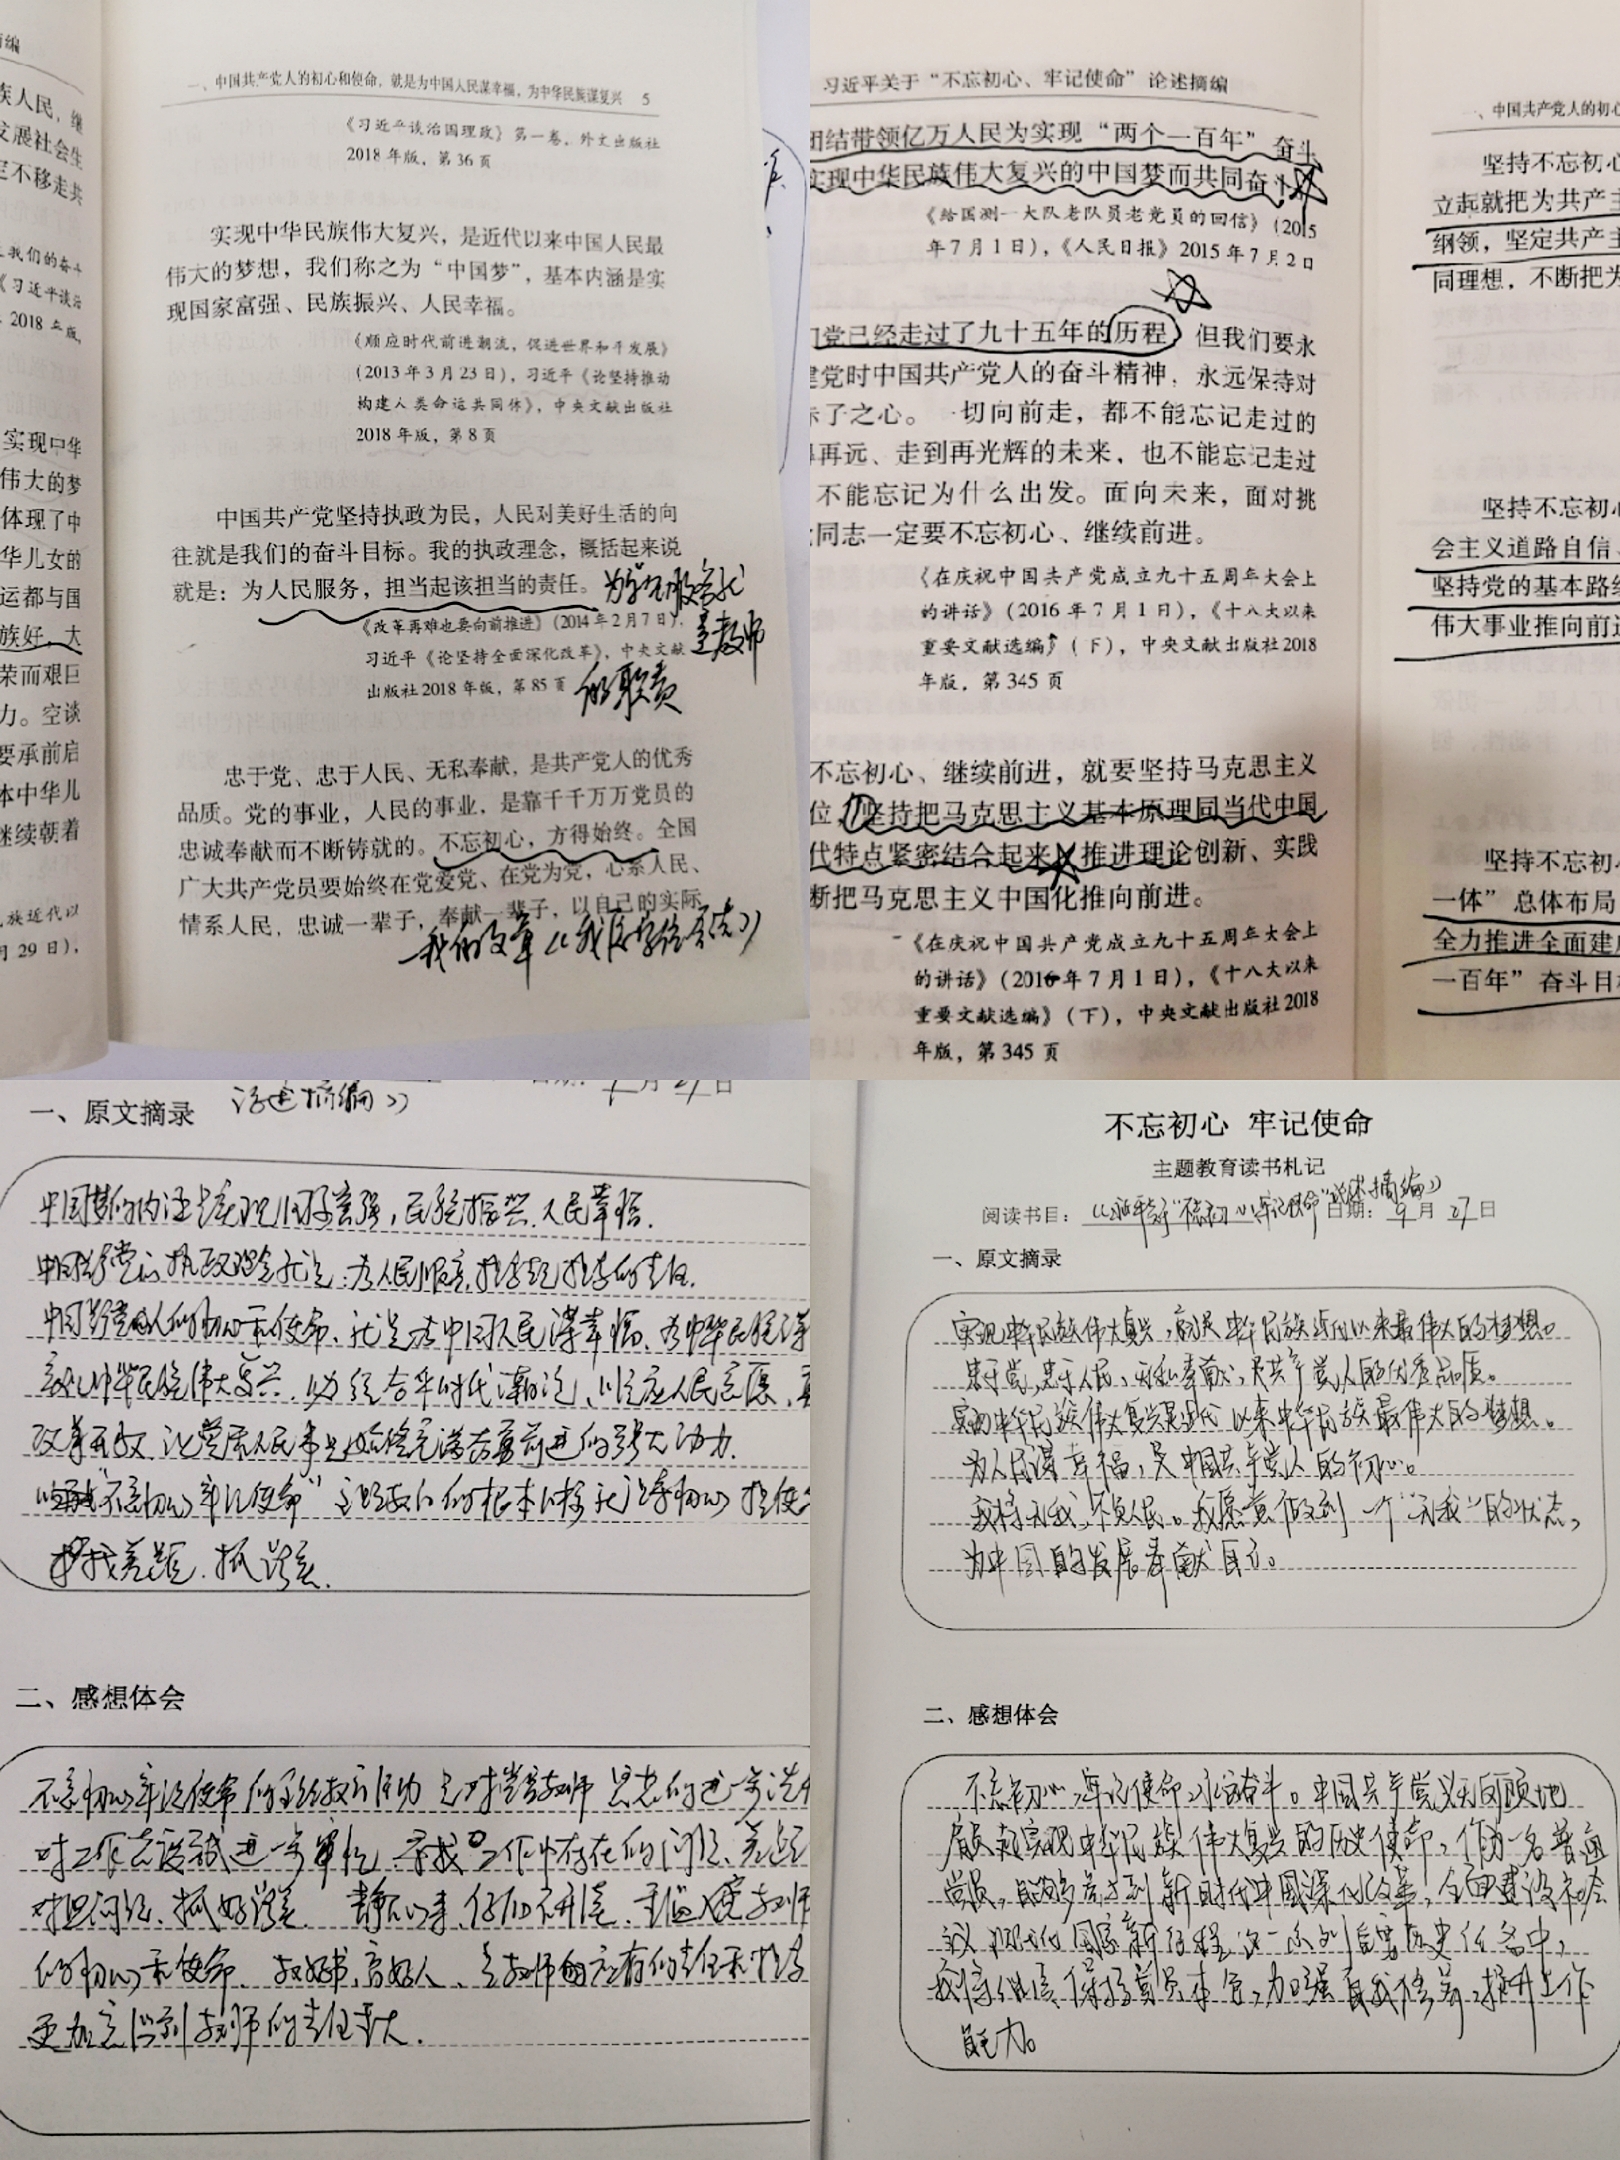 一、中国共产党人的初心和使命，就是为中国人民谋幸福，为中华民族谋复兴 5
《习近平谈治国理政》第一卷，外文出版社
2018年版，第36页
实现中华民族伟大复兴，是近代以来中国人民最
伟大的梦想，我们称之为“中国梦”，基本内涵是实
现国家富强、民族振兴、人民幸福。
《顺应时代前进潮流，促进世界和平发展》
（2013年3月23日），习近平《论坚持推动
构建人类命运共同体》，中央文献出版社
2018年版，第8页
中国共产党坚持执政为民，人民对美好生活的向
往就是我们的奋斗目标。我的执政理念，概括起来说
就是：为人民服务，担当起该担当的责任。
《改革再难也要向前推进》（2014年2月7日），
习近平《论坚持全面深化改革》，中央文献
出版社2018年版，第85页
是教师
的职责
忠于党、忠于人民、无私奉献，是共产党人的优秀
品质。党的事业，人民的事业，是靠千千万万党员的
忠诚奉献而不断铸就的。不忘初心，方得始终。全国
广大共产党员要始终在党爱党、在党为党，心系人民、
情系人民，忠诚一辈子，奉献一辈子，以自己的实际
我的文章
族人民，继
发展社会生
定不移走共
我们的奋斗
《习近平谈治
2018年版，
实现中华
伟大的梦
体现了中
华儿女的
运都与国
族好，大
荣而艰巨
力。空谈
要承前启
体中华儿
继续朝着
族近代以
月29日），
习近平关于“不忘初心、牢记使命”论述摘编
团结带领亿万人民为实现“两个一百年”奋斗
实现中华民族伟大复兴的中国梦而共同奋斗
《给国测一大队老队员老党员的回信》（2015
年7月1日），《人民日报》2015年7月2日
们党已经走过了九十五年的历程，但我们要永
建党时中国共产党人的奋斗精神，永远保持对
子之心。一切向前走，都不能忘记走过的
再远、走到再光辉的未来，也不能忘记走过
不能忘记为什么出发。面向未来，面对挑
同志一定要不忘初心、继续前进。
《在庆祝中国共产党成立九十五周年大会上
的讲话》（2016年7月1日），《十八大以来
重要文献选编》（下），中央文献出版社2018
年版，第345页
不忘初心、继续前进，就要坚持马克思主义
位，坚持把马克思主义基本原理同当代中国
代特点紧密结合起来，推进理论创新、实践
断把马克思主义中国化推向前进。
《在庆祝中国共产党成立九十五周年大会上
的讲话》（2016年7月1日），《十八大以来
重要文献选编》（下），中央文献出版社2018
年版，第345页
一、中国共产党人的初心
坚持不忘初心
立起就把为共产主
纲领，坚定共产主
同理想，不断把为
坚持不忘初心
会主义道路自信、
坚持党的基本路线
伟大事业推向前进
坚持不忘初心
一体”总体布局
全力推进全面建成
一百年”奋斗目标
论述摘编》
月27日
一、原文摘录
中国梦的内涵是实现国家富强，民族振兴，人民幸福．
中国共产党的执政理念就是：为人民服务，担当起担当的责任．
中国共产党人的初心和使命，就是为中国人民谋幸福，为中华民族谋
实现中华民族伟大复兴，必须合乎时代潮流，顺应人民意愿，
改革开放，让党和人民事业始终充满奋勇前进的强大动力．
“不忘初心 牢记使命”主题教育的根本 就是守初心 担使命
找差距．抓落实．
二、感想体会
不忘初心牢记使命的主题教育活动 是对党员教师 思想的进一步洗
对工作 进一步 寻找工作中存在的问题、差距
抓好落实 静下心来，仔细
的初心和使命．教好书，育好人，是教师应有的责任和担当
更加意识到教师的责任重大．
不忘初心 牢记使命
主题教育读书札记
阅读书目： 日期：9月27日
一、原文摘录
实现中华民族伟大复兴，就是中华民族近代以来最伟大的梦想。
忠于党，忠于人民，无私奉献，是共产党人的优秀品质。
实现中华民族伟大复兴是近代以来中华民族最伟大的梦想。
为人民谋幸福，是中国共产党人的初心。
我将无我，不负人民。我愿意做到一个“无我”的状态，
为中国的发展奉献自己。
二、感想体会
不忘初心，牢记使命，永远奋斗。中国共产党义无反顾地
肩负起实现中华民族伟大复兴的历史使命，作为一名普通
党员， 新时代中国深化改革，全面建设社会
主义现代化国家新征程这一系列 历史任务中，
我将 保持党员本色，加强自我修养，提升工作
能力。